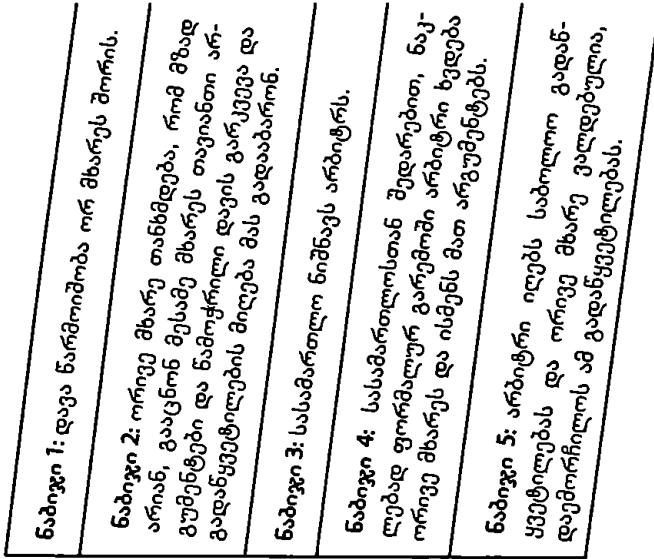 ნაბიჯი 1: დავა წარმოიშობა ორ მხარეს შორის.
ნაბიჯი 2: ორივე მხარე თანხმდება, რომ მზად
არიან, გააცნონ მესამე მხარეს თავიანთი არ-
გუმენტები და წამოჭრილი დავის გარკვევა და
გადაწყვეტილების მიღება მას გადააბარონ.
ნაბიჯი 3: სასამართლო ნიშნავს არბიტრს.
ნაბიჯი 4: სასამართლოსთან შედარებით, ნაკ-
ლებად ფორმალურ გარემოში არბიტრი ხვდება
ორივე მხარეს და ისმენს მათ არგუმენტებს.
ნაბიჯი 5: არბიტრი იღებს საბოლოო გადაწ-
ყვეტილებას და ორივე მხარე ვალდებულია,
დაემორჩილოს ამ გადაწყვეტილებას.